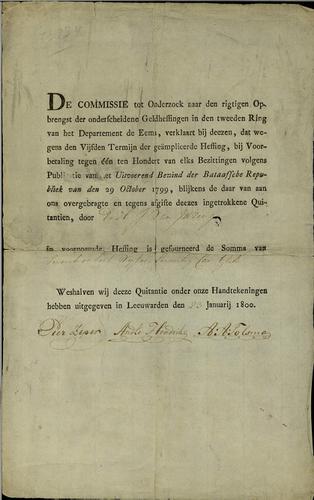 DE COMMISSIE tot Onderzoek naar den rigtigen Op-
brengst der onderscheidene Geldheffingen in den tweeden Ring
van het Departement de Eems, verklaart bij deezen, dat we-
gens den Vijfden Termijn der geämplicerde Heffing, bij Voor-
betaling tegen één ten Hondert van elks Bezittingen volgens
Publicatie van het Uitvoerend Bewind der Bataafsche Repu-
bliek van den 29 October 1799, blijkens de daar van aan
ons overgebragte en tegens afgifte deezes ingetrokkene Qui-
tantien, door
in voornoemde Heffing is gefourneerd de Somma van
Weshalven wij deeze Quitantie onder onze Handtekeningen
hebben uitgegeven in Leeuwarden den 23 Januarij 1800.
Pier Zeper